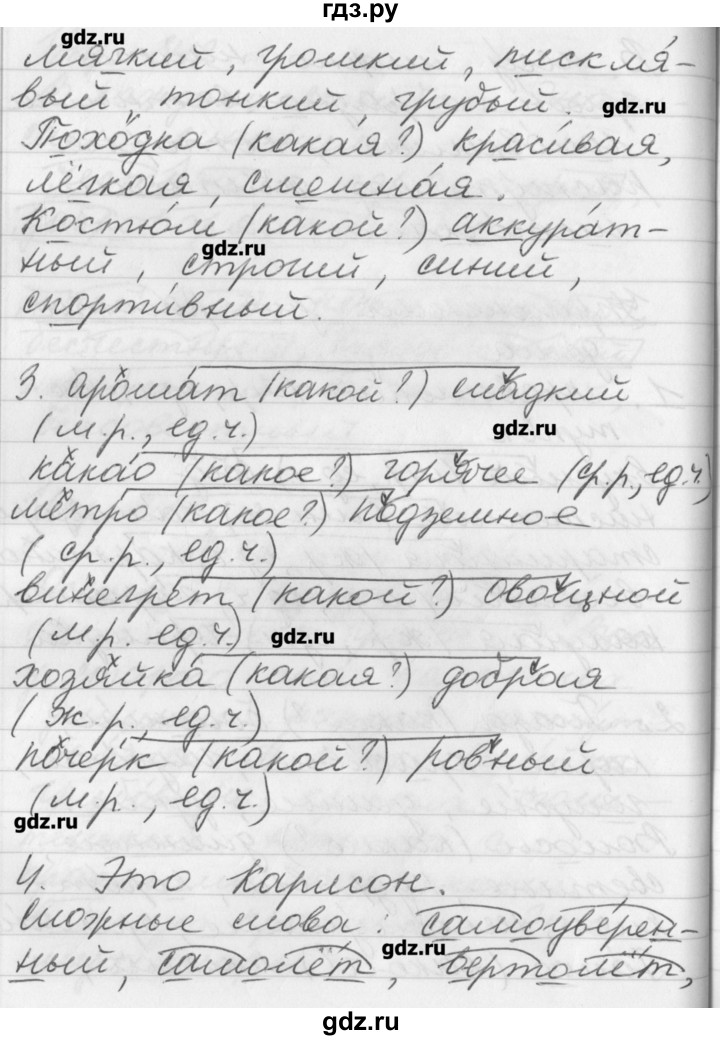 гдз.ру
gdz.ru
мягкий, громкий, пискля-
вый тонкий, грубый.
gdz.ru
Походка (какая?) красивая,
лёгкая, смешная.
Костюм (какой?) аккурат-
gdz.ru
ный, строгий, синий,
спортивный.
3. аромат (какой?) сладкий
(м.р., ед.ч.)
gdz.ru
какао (какое?) горячее (ср.р., ед.ч.)
метро (какое?) подземное
(ср.р., ед.ч.)
винегрет (какой?) овощной
(м.р. ед.ч.)
gdz.ru
хозяйка (какая?) добрая
(ж.р., ед.ч.)
почерк (какой?) ровный
(м.р., ед.ч.)
gdz.ru
4. Это Карлсон.
Сложные слова: самоуверен-
gdz.ru
ный, самолёт, вертолёт,
gdz.ru